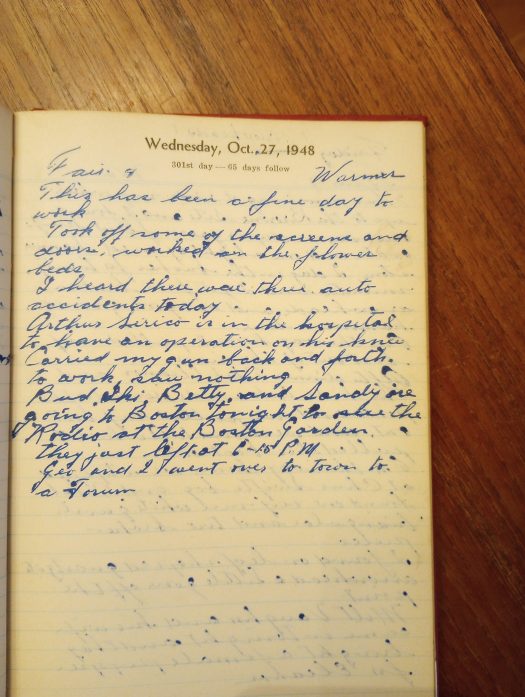 Wednesday, Oct. 27, 1948
301st day — 65 days follow
Fair & Warmer
This has been a fine day to
work
Took off some of the screens and
doors, worked on the flower
beds
I heard there was three auto
accidents today
Arthur Serico is in the hospital
to have an operation on his knee
Carried my gun back and forth
to work saw nothing
Bud, Betty, and Sandy are
going to Boston tonight to see the
Rodio at the Boston Garden
they just left at 6-15 P.M
Geo and I went over to town to
a Forum